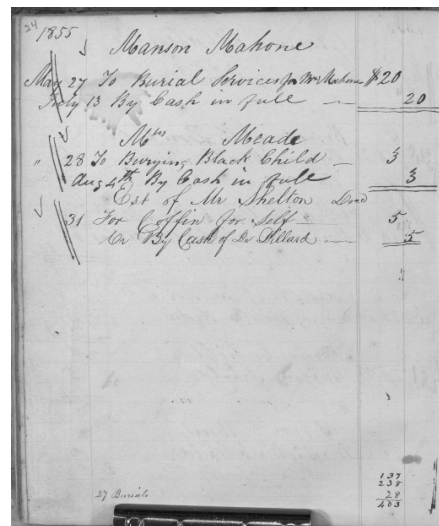 24
1855
Manson Mahone
May 27 To Burial Services for Mr Mahone $20
July 13 By Cash in full — 20
Mrs Meade
" 28 To Burying Black Child — 3
Aug 4th By Cash in full 3
Est of Mr Shelton Dead
31 For Coffin for Self — 5
Cr By Cash of Dr Dillard — 5
137
238
28
403
27 Burials